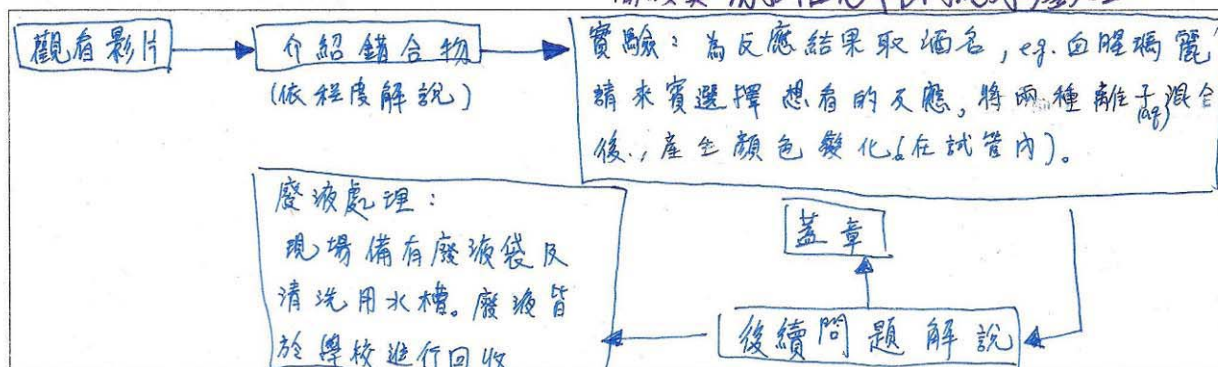 觀看影片
介紹錯合物
(依程度解說)
實驗：為反應結果取酒名, eg. 血腥瑪麗
請來賓選擇想看的反應。將兩種離子(aq)混合
後，產生顏色變化(在試管內)。
廢液處理：
現場備有廢液袋及
清洗用水槽。廢液皆
於學校進行回收
蓋章
後續問題解說